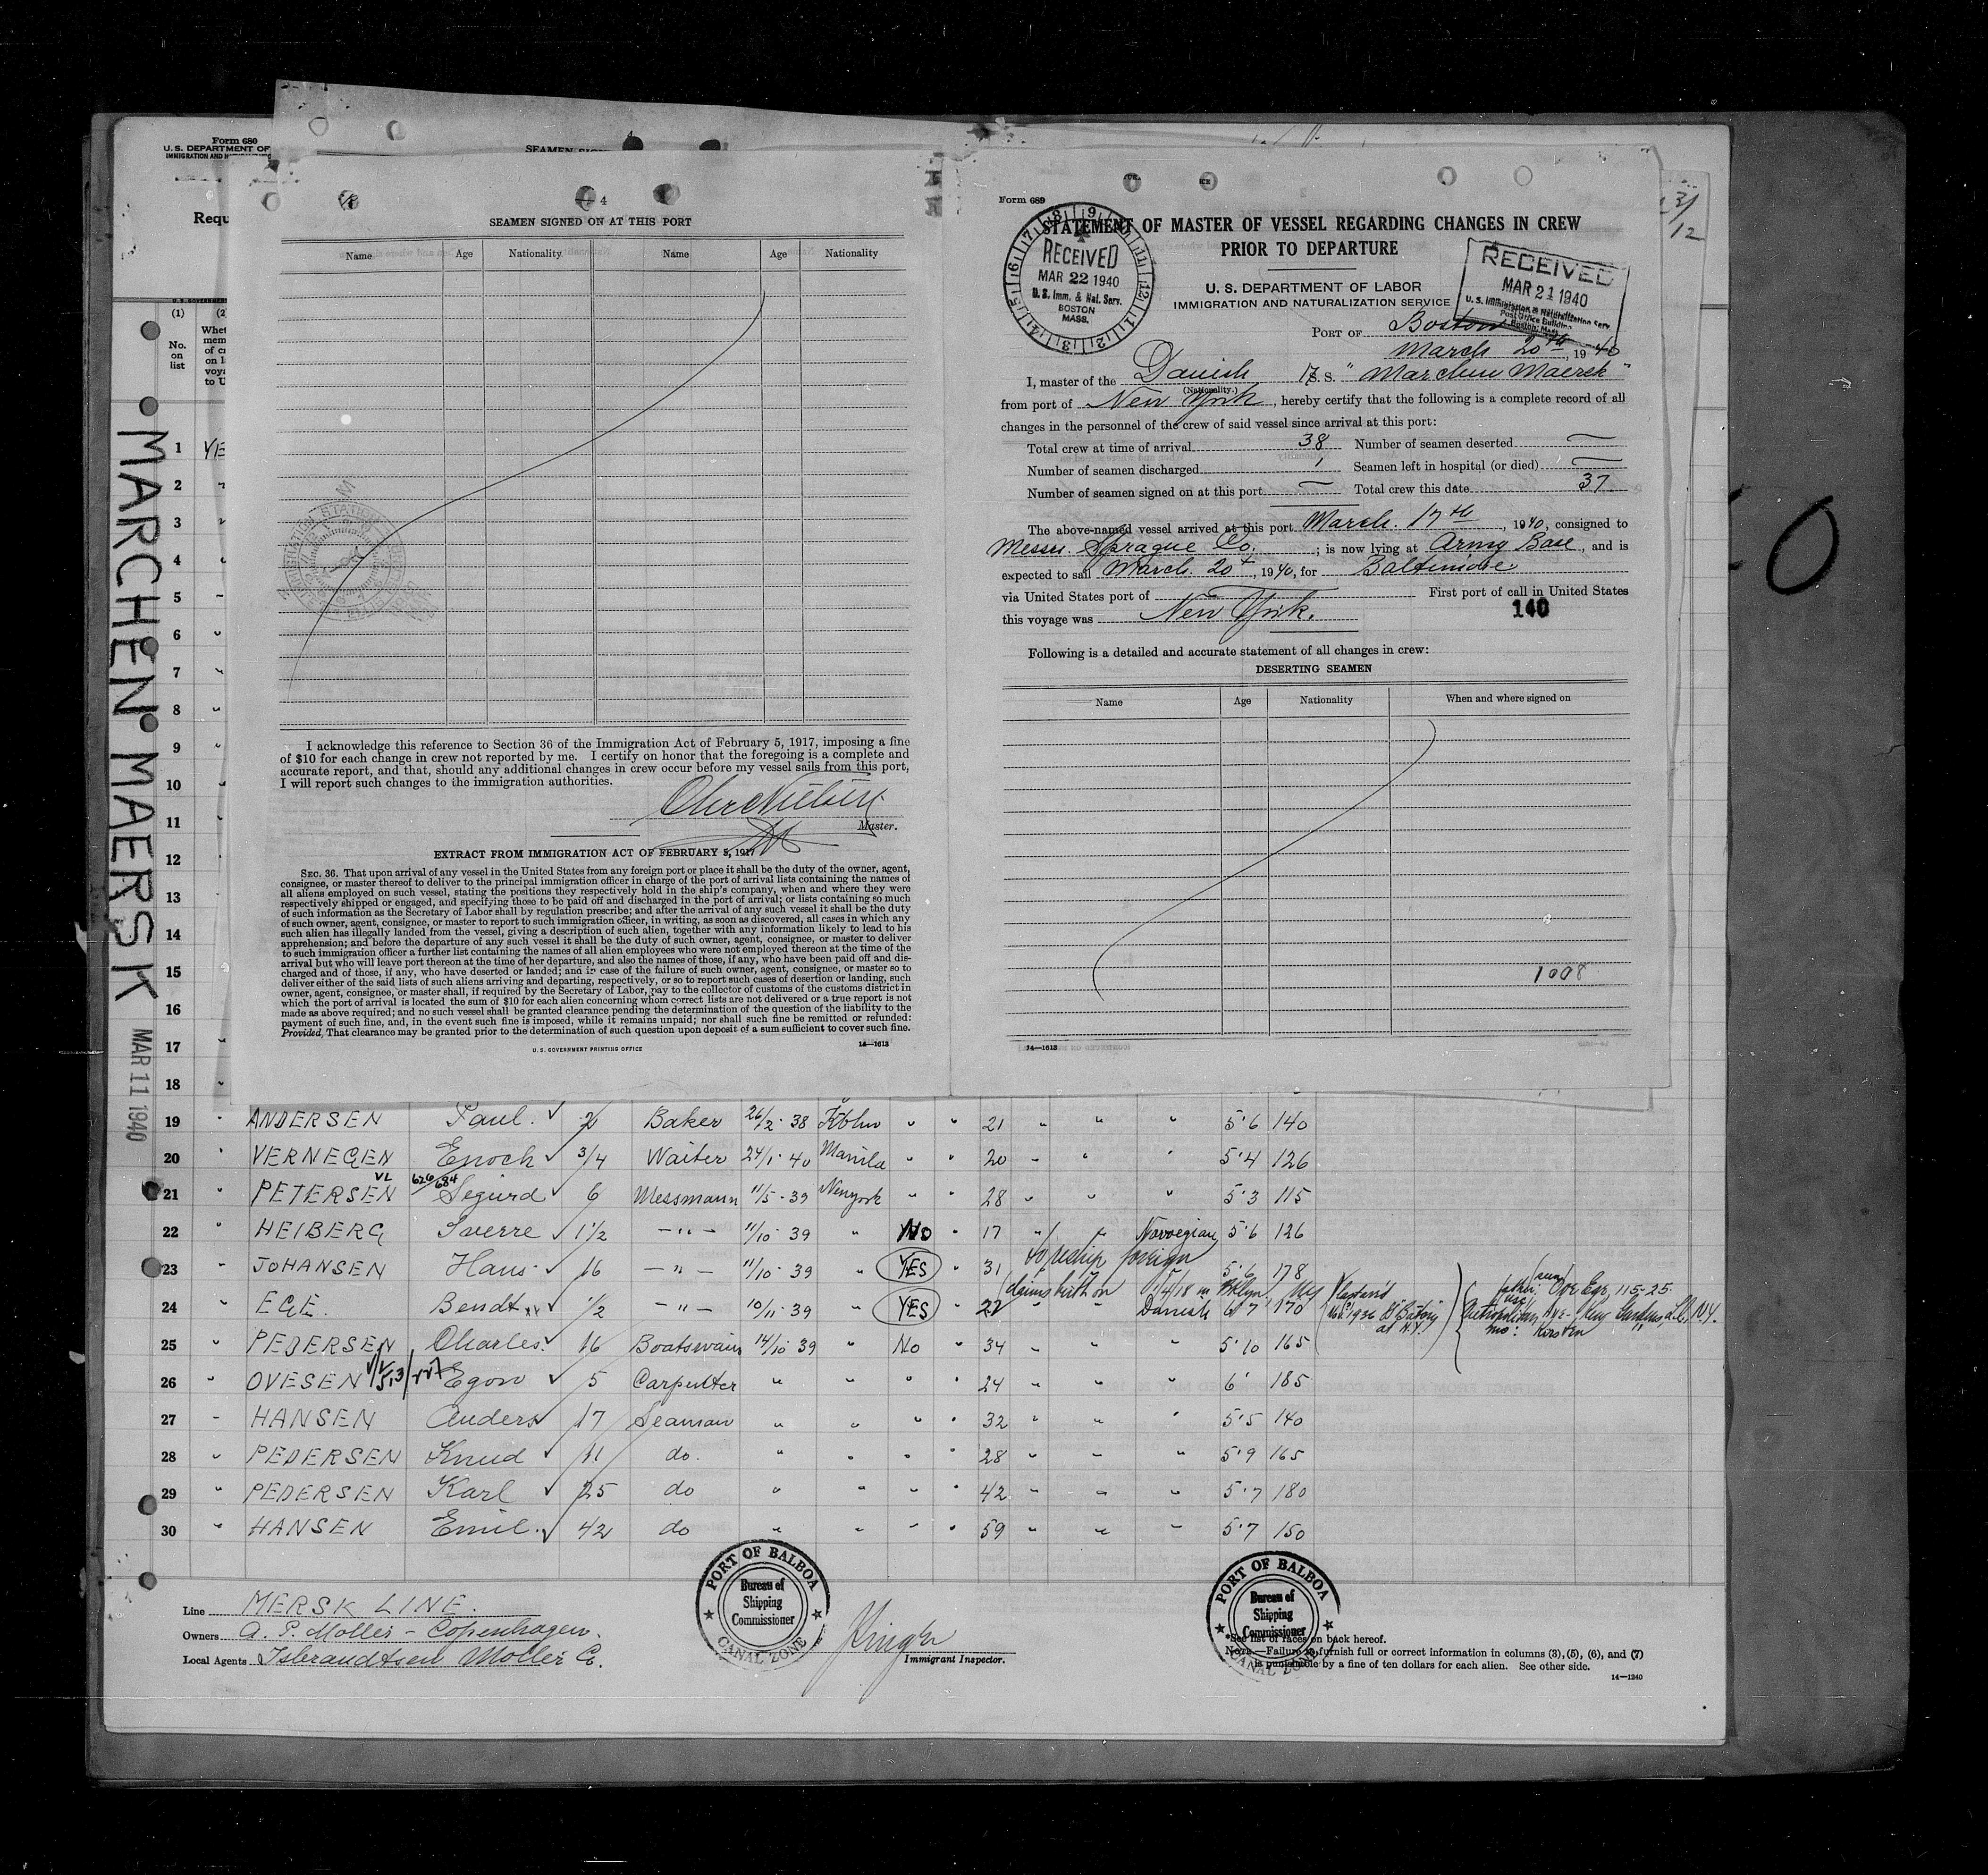 Form 680
U. S. DEPARTMENT OF
IMMIGRATION AND
SEAMEN
Requ
(1)
No.
on
list
MARCHEN MAERSK
MAR 11 1940
4
SEAMEN SIGNED ON AT THIS PORT
Name Age Nationality Name Age Nationality
I acknowledge this reference to Section 36 of the Immigration Act of February 5, 1917, imposing a fine
of $10 for each change in crew not reported by me. I certify on honor that the foregoing is a complete and
accurate report, and that, should any additional changes in crew occur before my vessel sails from this port,
I will report such changes to the immigration authorities.
Master.
EXTRACT FROM IMMIGRATION ACT OF FEBRUARY 5, 1917
SEC. 36. That upon arrival of any vessel in the United States from any foreign port or place it shall be the duty of the owner, agent,
consignee, or master thereof to deliver to the principal immigration officer in charge of the port of arrival lists containing the names of
all aliens employed on such vessel, stating the positions they respectively hold in the ship's company, when and where they were
respectively shipped or engaged, and specifying those to be paid off and discharged in the port of arrival; or lists containing so much
of such information as the Secretary of Labor shall by regulation prescribe; and after the arrival of any such vessel it shall be the duty
of such owner, agent, consignee, or master to report to such immigration officer, in writing, as soon as discovered, all cases in which any
such alien has illegally landed from the vessel, giving a description of such alien, together with any information likely to lead to his
apprehension; and before the departure of any such vessel it shall be the duty of such owner, agent, consignee, or master to deliver
to such immigration officer a further list containing the names of all alien employees who were not employed thereon at the time of the
arrival but who will leave port thereon at the time of her departure, and also the names of those, if any, who have been paid off and dis-
charged and of those, if any, who have deserted or landed; and in case of the failure of such owner, agent, consignee, or master so to
deliver either of the said lists of such aliens arriving and departing, respectively, or so to report such cases of desertion or landing, such
owner, agent, consignee, or master shall, if required by the Secretary of Labor, pay to the collector of customs of the customs district in
which the port of arrival is located the sum of $10 for each alien concerning whom correct lists are not delivered or a true report is not
made as above required; and no such vessel shall be granted clearance pending the determination of the question of the liability to the
payment of such fine, and, in the event such fine is imposed, while it remains unpaid; nor shall such fine be remitted or refunded:
Provided, That clearance may be granted prior to the determination of such question upon deposit of a sum sufficient to cover such fine.
U. S. GOVERNMENT PRINTING OFFICE 14—1613
Form 689
STATEMENT OF MASTER OF VESSEL REGARDING CHANGES IN CREW
PRIOR TO DEPARTURE
RECEIVED
MAR 22 1940
U. S. Imm. & Nat. Serv.
BOSTON
MASS.
RECEIVED
MAR 21 1940
U. S. Immigration & Naturalization Serv.
Post Office Building
Boston, Mass.
U. S. DEPARTMENT OF LABOR
IMMIGRATION AND NATURALIZATION SERVICE
PORT OF Boston
March 20th, 1940
I, master of the Danish S. S. "Marchen Maersk"
(Nationality.)
from port of New York, hereby certify that the following is a complete record of all
changes in the personnel of the crew of said vessel since arrival at this port:
Total crew at time of arrival 38 Number of seamen deserted —
Number of seamen discharged 1 Seamen left in hospital (or died) —
Number of seamen signed on at this port — Total crew this date 37
The above-named vessel arrived at this port March. 17th, 1940, consigned to
Messrs. Sprague Co.; is now lying at Army Base, and is
expected to sail March. 20t, 1940, for Baltimore
via United States port of — First port of call in United States
this voyage was New York.
140
Following is a detailed and accurate statement of all changes in crew:
DESERTING SEAMEN
Name Age Nationality When and where signed on
1008
14—1613
3/12
0
1 YE
2
3
4
5
6
7
8
9
10
11
12
13
14
15
16
17
18
19 " ANDERSEN Paul. 2 Baker 26/2-38 Kbhvn " " 21 " " " 5'6 140
20 " VERNEGEN Enoch 3/4 Waiter 24/1-40 Manila " " 20 " " " 5'4 126
21 " PETERSEN Segurd 6 Messmann 11/5-39 Newyork " " 28 " " " 5'3 115
22 " HEIBERG Sverre 1 1/2 -"- 11/10 39 " No " 17 " " Norvegian 5'6 126
23 " JOHANSEN Hans 16 -"- 11/10-39 " YES " 31 to reship foreign 5'6 178
24 " EGE. Bendt 1/2 -"- 10/11-39 " YES " 22 " " Danish 6'7" 170
claims birth on
Metropolitan Ave- Kew Gardens, L.I., N.Y.
mo: Kirsten
25 " PEDERSEN Charles. 16 Boatswain 14/10 39 " No " 34 " " " 5'10 165
26 " OVESEN Egon 5 Carpenter " " " " 24 " " " 6' 185
27 " HANSEN Anders 17 Seaman " " " " 32 " " " 5'5 140
28 " PEDERSEN Knud 11 do. " " " " 28 " " " 5'9 165
29 " PEDERSEN Karl 25 do " " " " 42 " " " 5'7 180
30 " HANSEN Emil. 42 do " " " " 59 " " " 5'7 150
Line MERSK LINE.
Owners A. P. Moller - Copenhagen.
Local Agents Isbrandtsen Moller Co.
PORT OF BALBOA
Bureau of
Shipping
Commissioner
CANAL ZONE
Immigrant Inspector.
PORT OF BALBOA
Bureau of
Shipping
Commissioner
CANAL ZONE
*See list of races on back hereof.
NOTE.—Failure to furnish full or correct information in columns (3), (5), (6), and (7)
is punishable by a fine of ten dollars for each alien. See other side.
14—1240